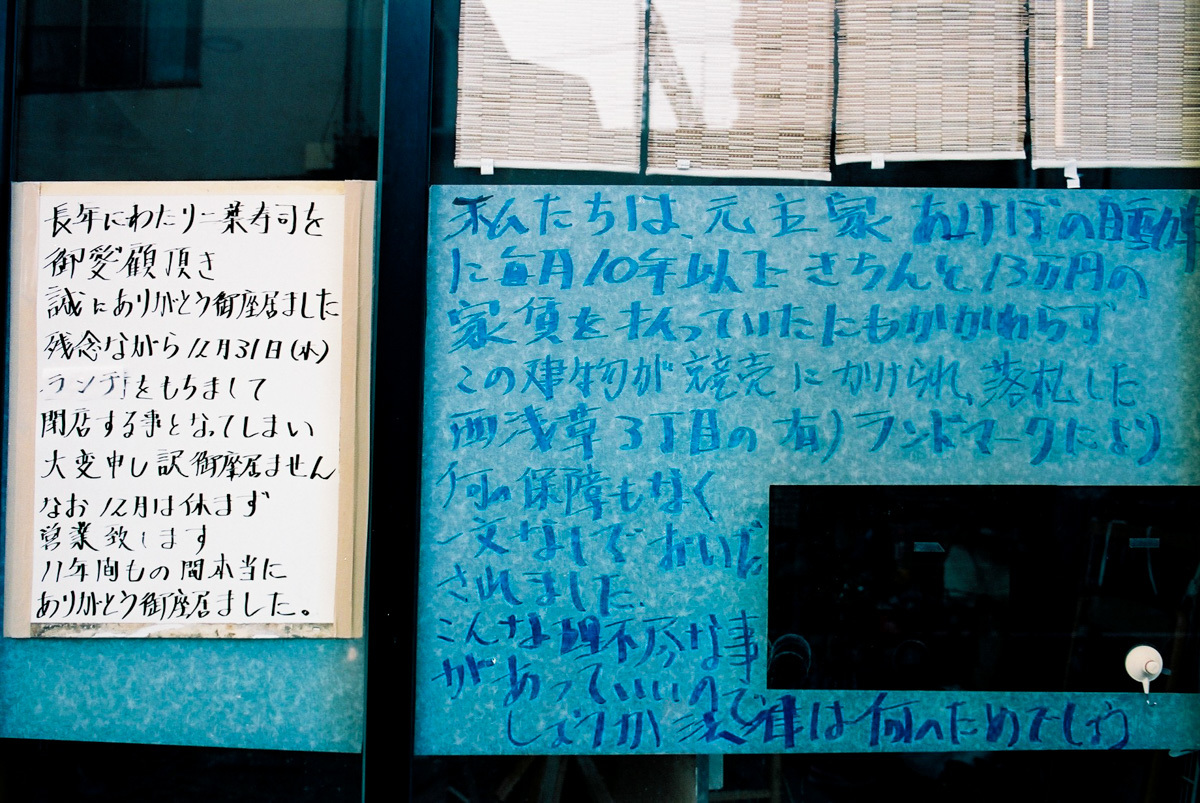 長年にわたり一葉寿司を
御愛顧頂き
誠にありがとう御座居ました
残念ながら12月31日(水)
ランチをもちまして
閉店する事となってしまい
大変申し訳御座居ません
なお12月は休まず
営業致します
11年間もの間本当に
ありがとう御座居ました。
私たちは、元主家 あけぼの
に毎月10年以上きちんと13万円の
家賃を払っていたにもかかわらず
この建物が競売にかけられ、落札した
西浅草3丁目の有)ランドマークにより
何の保障もなく
一文なしでおいだ
されました.
こんな理不尽な事
があっていいので
しょうか 法律は何のためでしょう